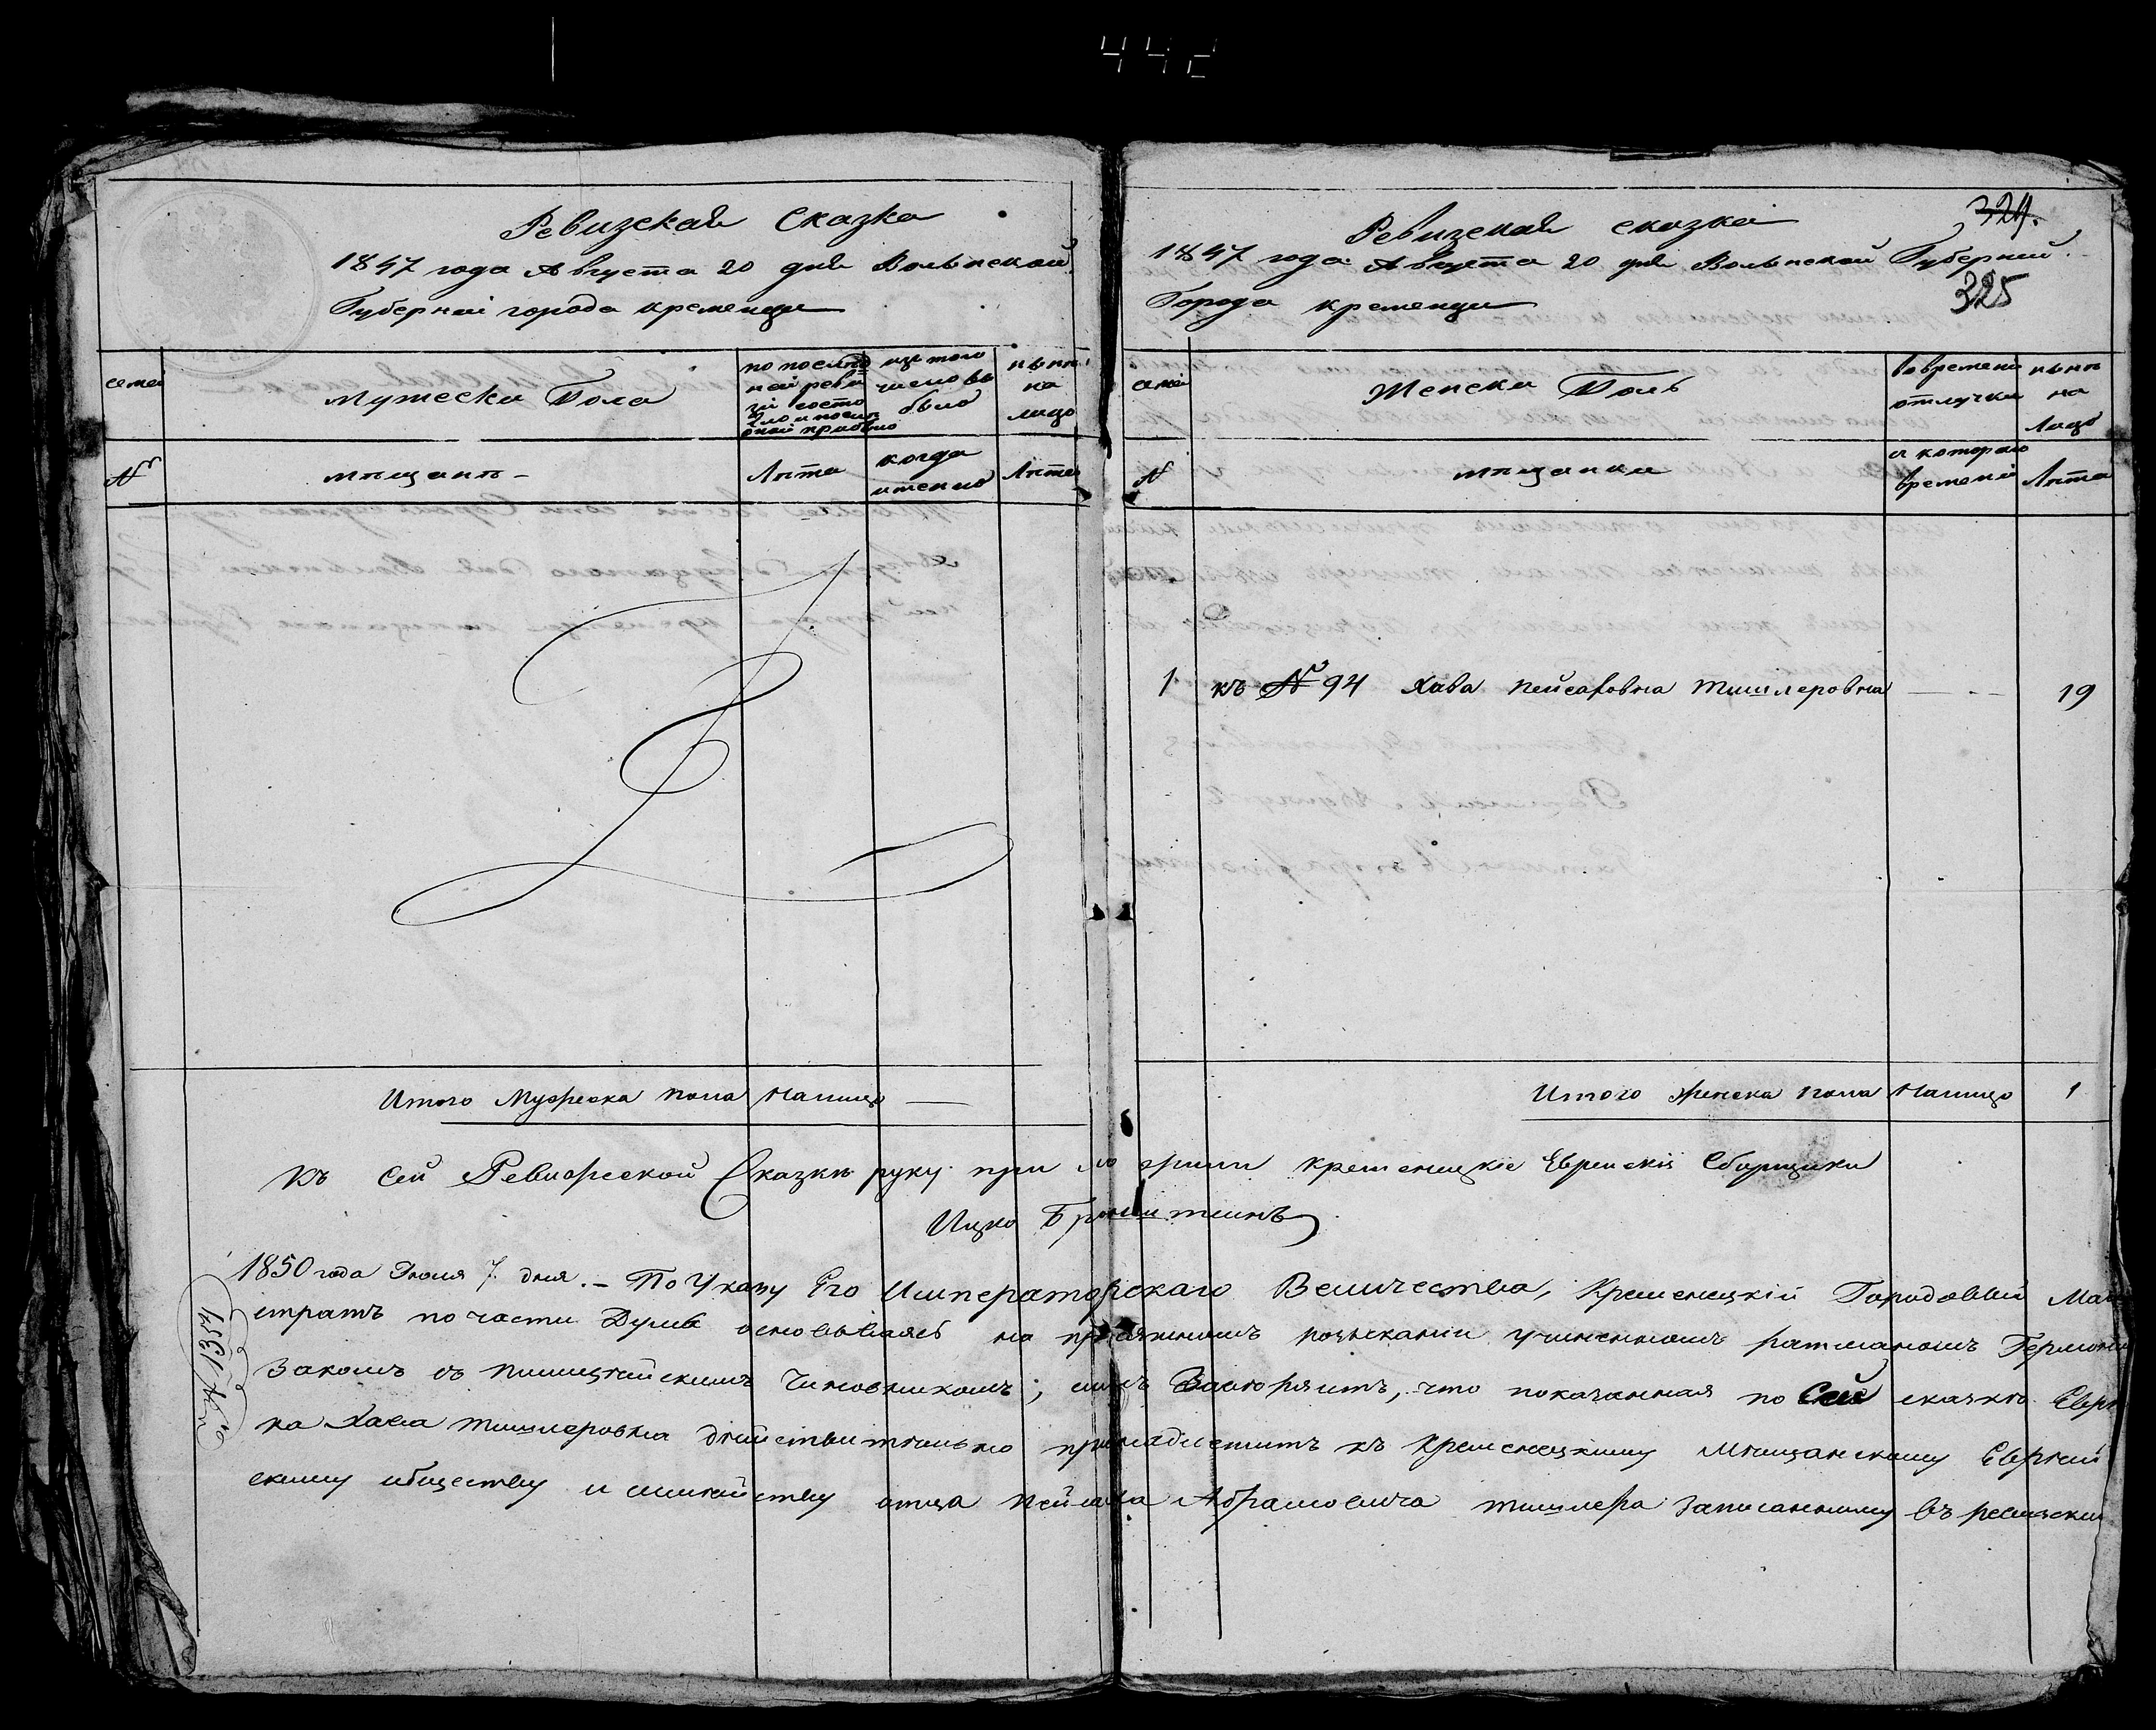 442
Ревизская Сказка
1847 года Августа 20 дня Волынской
Губерний города кременца
семей
Мужеска Пола
по послед
ней реви
зй состо
яло и после
оной прибыло
изъ того
числа вы
было
нынѣ
на
лицо
№
мѣщанѣ
Лѣта
когда
именно
Лѣта
Итого Мужеска пола Налицо —
Ревизская сказка
324.
1847 года Августа 20 дня Волынской Губерний
325
Города кременца
семей
Женска Полъ
во времени
отлучки
нынѣ
на
Лицо
№
мѣщанки
с котораго
времени
Лѣта
1 къ № 94 Хава Пейсаховна Тишлеровна — 19
Итого женска пола Налицо 1
Къ сей Ревизской Сказкѣ руку приложили кременецкіе Еврейскіе Сборщики
Ицко
1850 года Июля 7 дня. – По Указу Его Императорскаго Величества, Кременецкій Городовый Маги
стратъ по части Думы основываясь на присяжномъ розысканіи учиненномъ ратманомъ
съ полицейскимъ Чиновникомъ; симъ что показанная по Сей сказкѣ Еврей
ка Хава Тишлеровна дѣйствительно принадлежитъ къ Кременецкому Мѣщанскому Еврей
скому обществу и семейству отца Пейсаха Абрамовича Тишлера записанному въ ревизской
1834